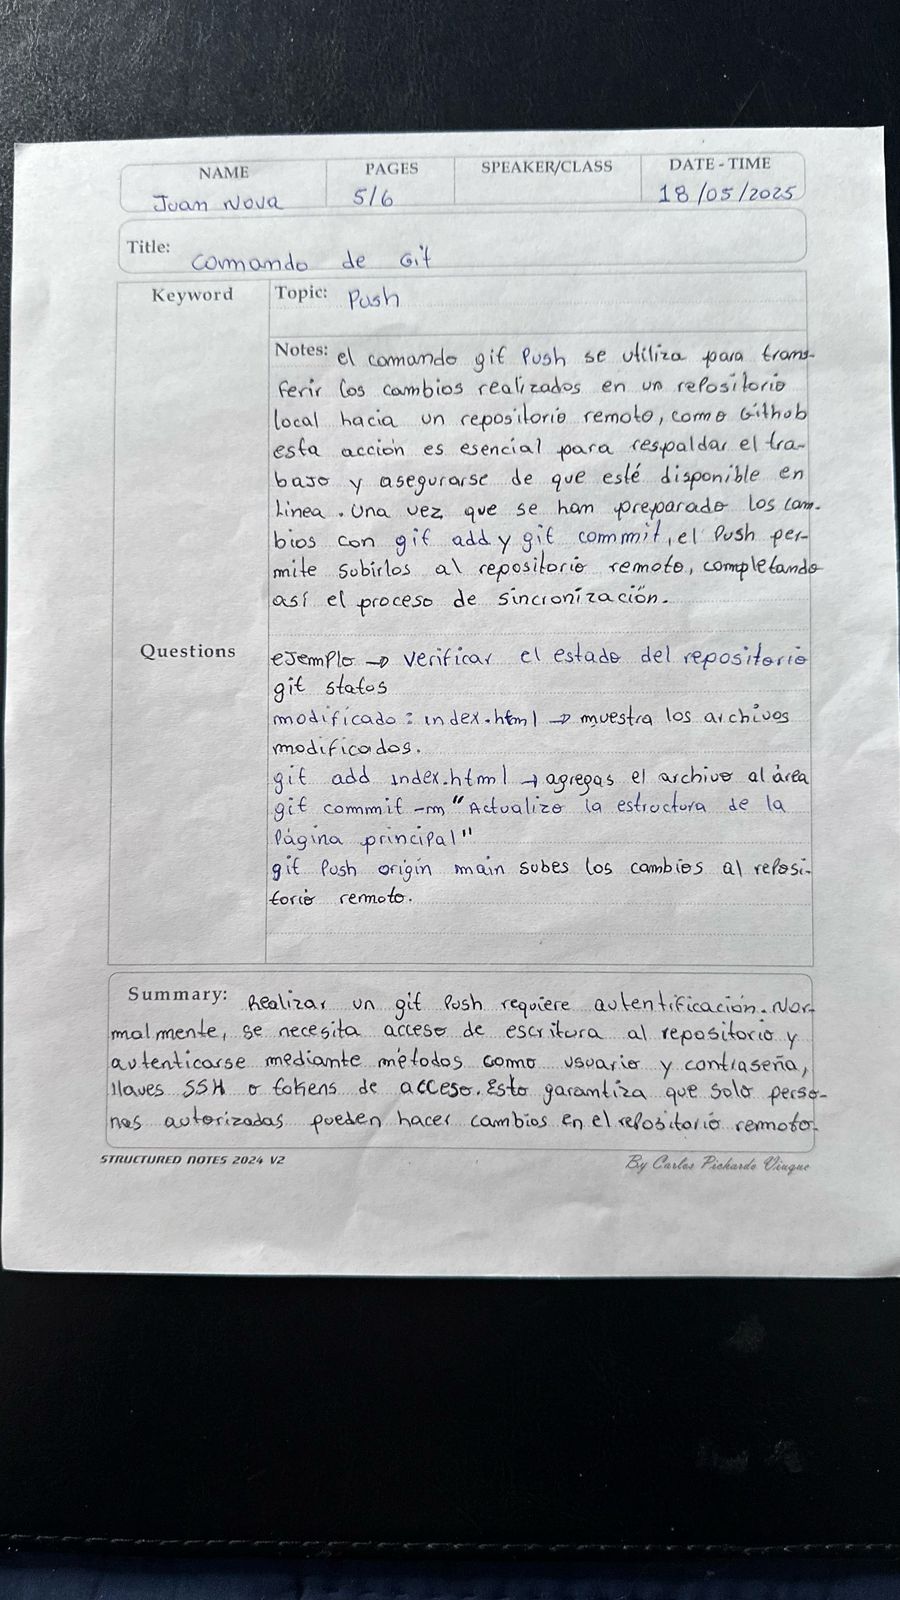 NAME PAGES SPEAKER/CLASS DATE - TIME
Juan Nova 5/6 18/05/2025
Title: Comando de Git
Keyword Topic: Push
Notes: el comando git Push se utiliza para trans-
ferir los cambios realizados en un repositorio
local hacia un repositorio remoto, como Github
esta acción es esencial para respaldar el tra-
bajo y asegurarse de que esté disponible en
Linea. Una vez que se han preparado los cam-
bios con git add y git commit, el Push per-
mite subirlos al repositorio remoto, completando
así el proceso de sincronización.
Questions ejemplo → Verificar el estado del repositorio
git status
modificado: index.html → muestra los archivos
modificados.
git add index.html → agregas el archivo al área
git commit -m "Actualizo la estructura de la
Página principal"
git Push origin main subes los cambios al reposi-
torio remoto.
Summary: Realizar un git Push requiere autentificación. Nor-
malmente, se necesita acceso de escritura al repositorio y
autenticarse mediante métodos como usuario y contraseña,
llaves SSH o tokens de acceso. Esto garantiza que solo perso-
nas autorizadas pueden hacer cambios en el repositorio remoto.
STRUCTURED NOTES 2024 V2 By Carlos Pichardo Viuque